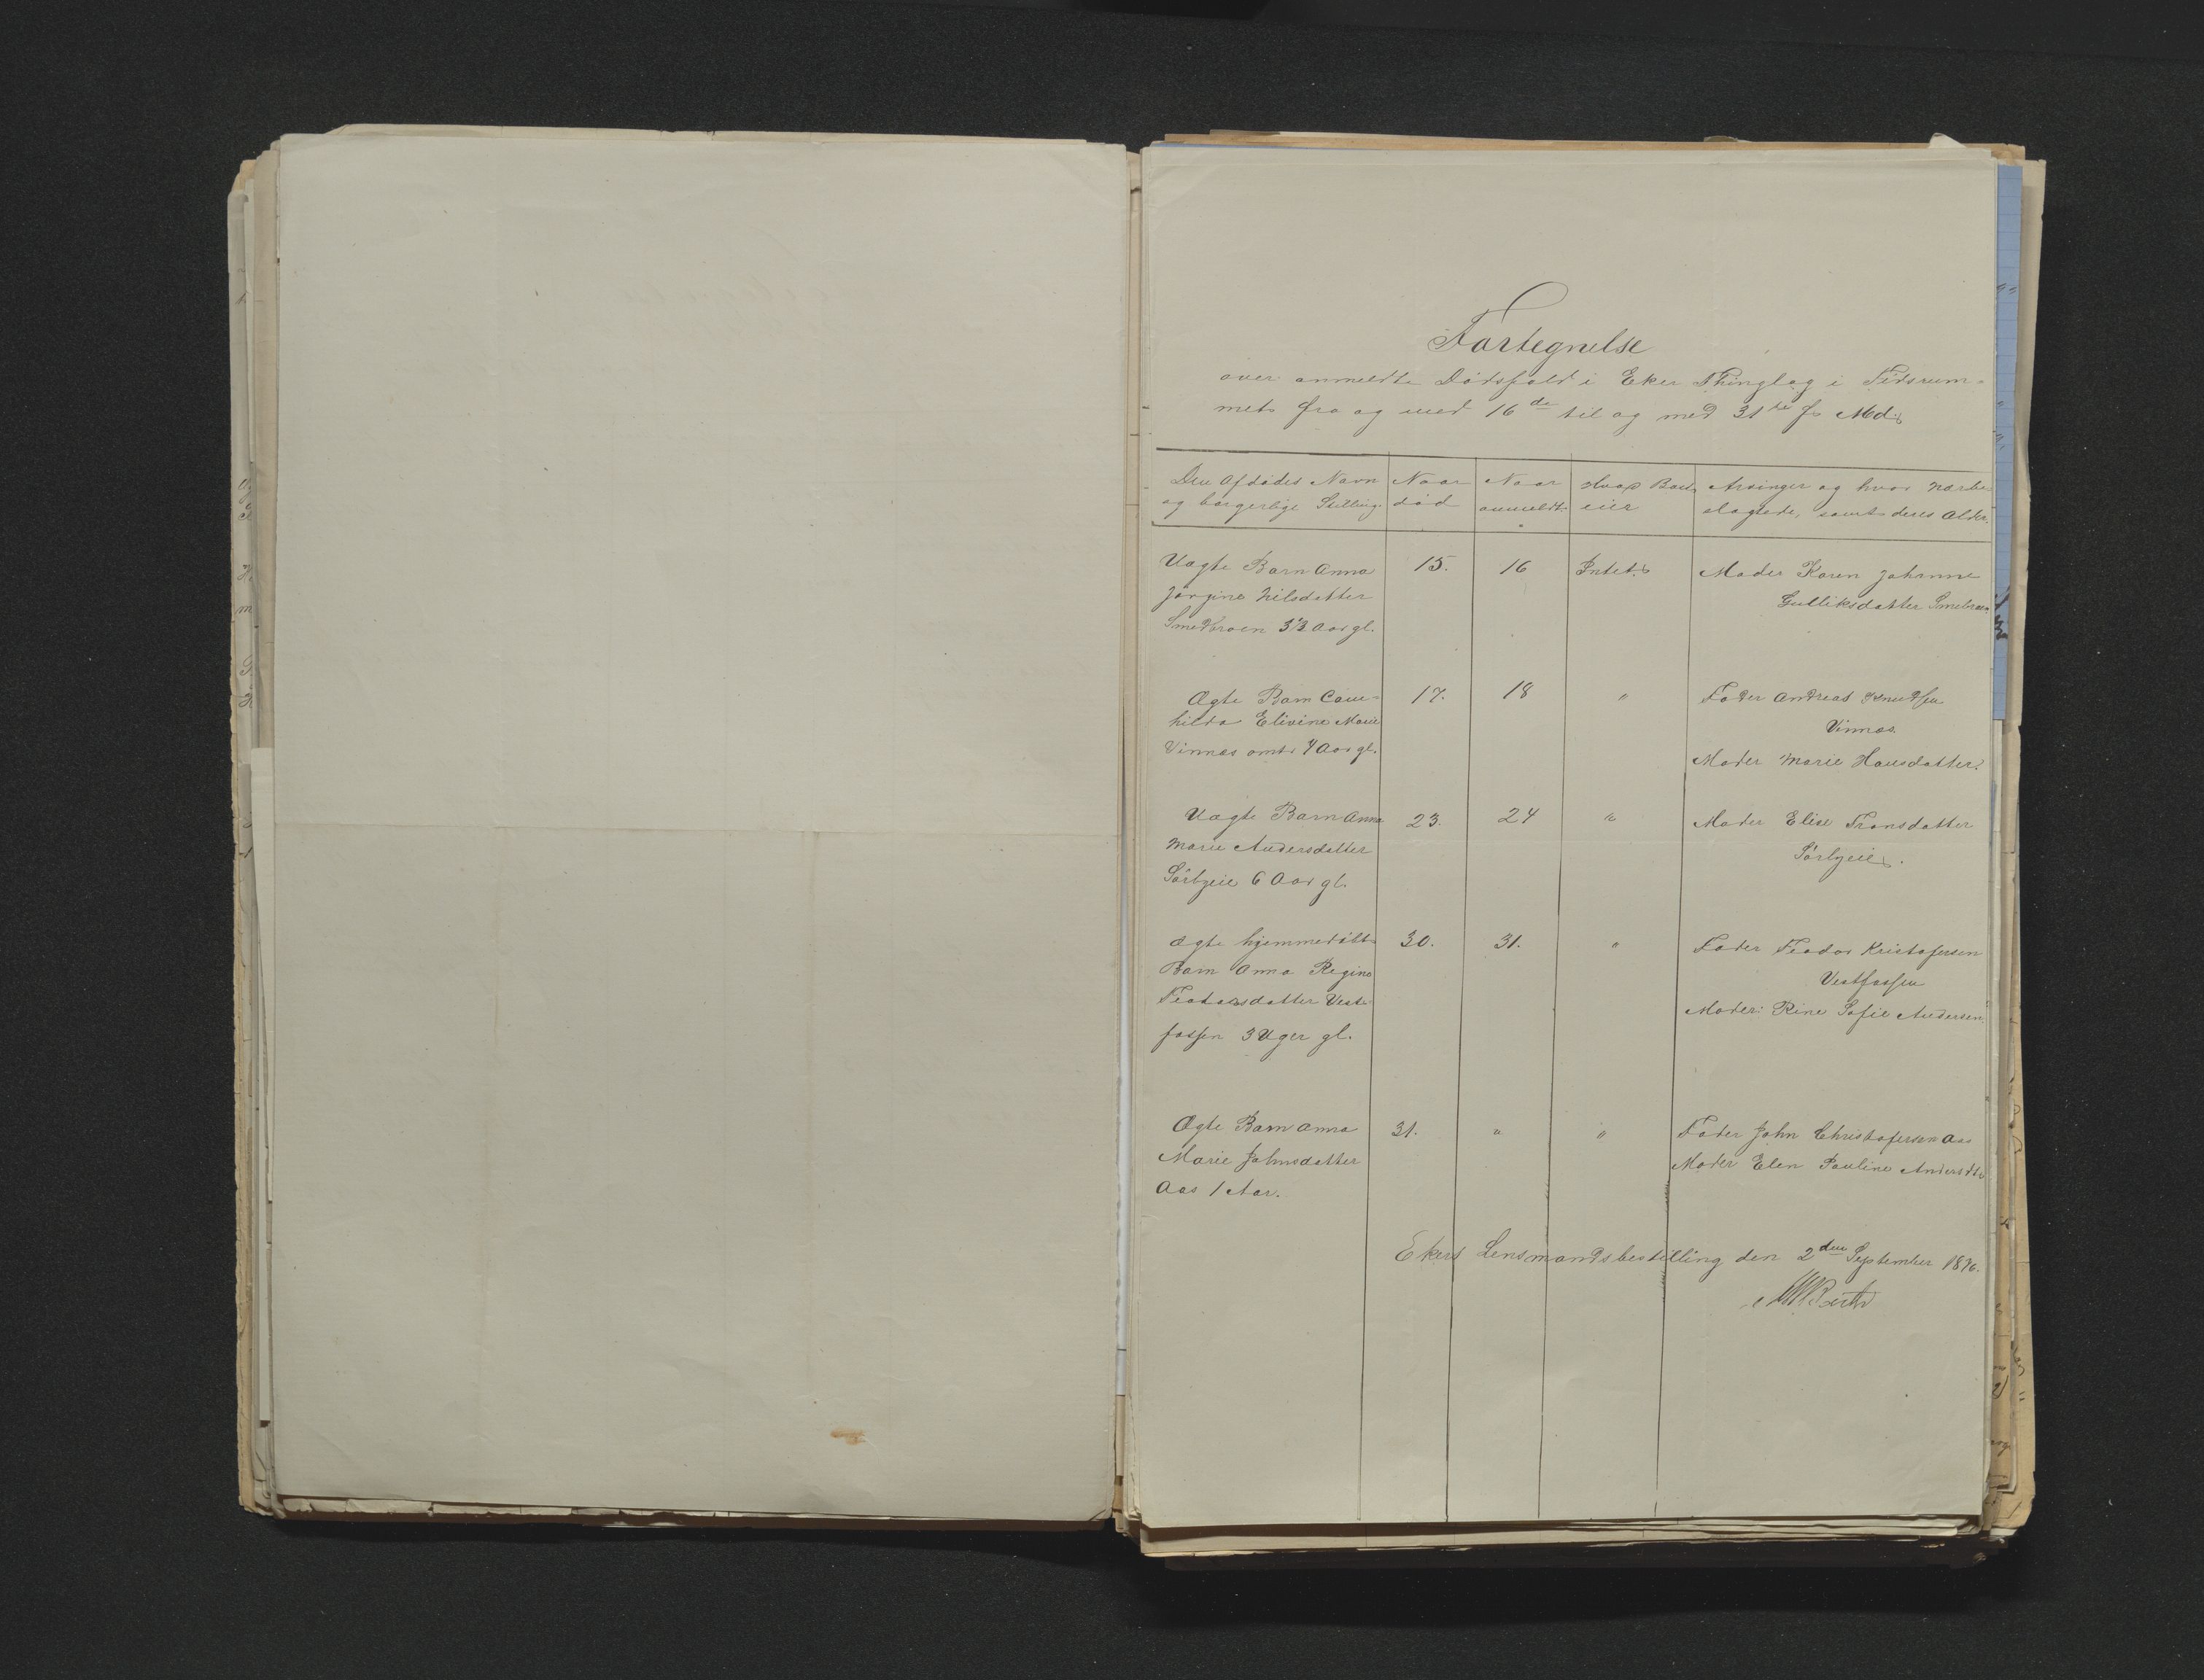 Fortegnelse
over anmeldte Dødsfald i Eker Thinglag i Tidsrum-
met fra og med 16de til og med 31te f. Md.
Den Afdødes Navn
og borgerlige Stilling.
Naar
død
Naar
anmeldt.
Hvad Boet
eier
Arvinger og hvor nærbe-
slægtede, samt deres Alder.
Uægte Barn Anna
Jørgine Nilsdatter
Smedbraaten 3 1/3 Aar gl.
15.
16
Intet.
Moder Karen Johanne
Gulliksdatter
Ægte Barn
Elivine Marie
Vinnæs omtr. 4 Aar gl.
17.
18
"
Fader Andreas Knudsen
Vinnæs.
Moder Marie Hansdatter.
Uægte Barn Anna
Marie Andersdatter
Sørbyeie 6 Aar gl.
23.
24
"
Moder Elise Fransdatter
Sørbyeie.
Ægte hjemmedøbt
Barn Anna Regine
Teodorsdatter Vest-
fossen 3 Uger gl.
30.
31.
"
Fader Teodor Kristofersen
Vestfossen
Moder: Rine Sofie Andersen.
Ægte Barn Anna
Marie Johnsdatter
Aas 1 Aar.
31.
"
"
Fader John Christofersen Aas
Moder Elen Pauline Andersdtr
Ekers Lensmandsbestilling den 2den September 1876.